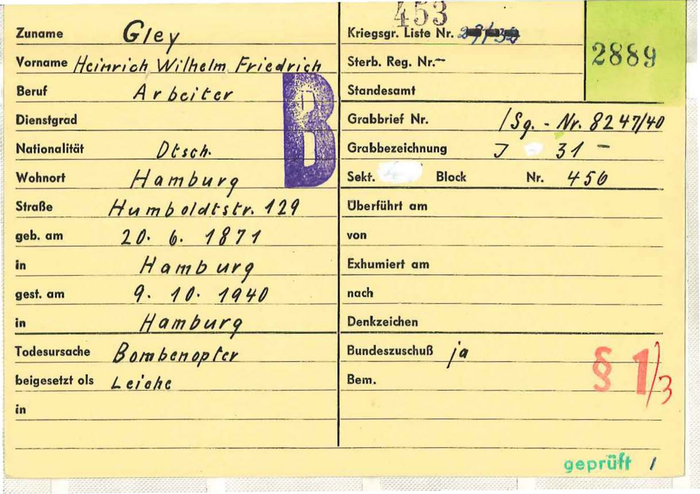 453
Zuname Gley
Vorname Heinrich Wilhelm Friedrich
Beruf Arbeiter
Dienstgrad
Nationalität Dtsch.
Wohnort Hamburg
Straße Humboldtstr. 129
geb. am 20. 6. 1871
in Hamburg
gest. am 9. 10. 1940
in Hamburg
Todesursache Bombenopfer
beigesetzt als Leiche
in
B
Kriegsgr. Liste Nr.
2889
Sterb. Reg. Nr.-
Standesamt
Grabbrief Nr. /Sg. - Nr. 8247/40
Grabbezeichnung J 31 -
Sekt. Block Nr. 456
Überführt am
von
Exhumiert am
nach
Denkzeichen
Bundeszuschuß ja
Bem.
§ 1/3
geprüft